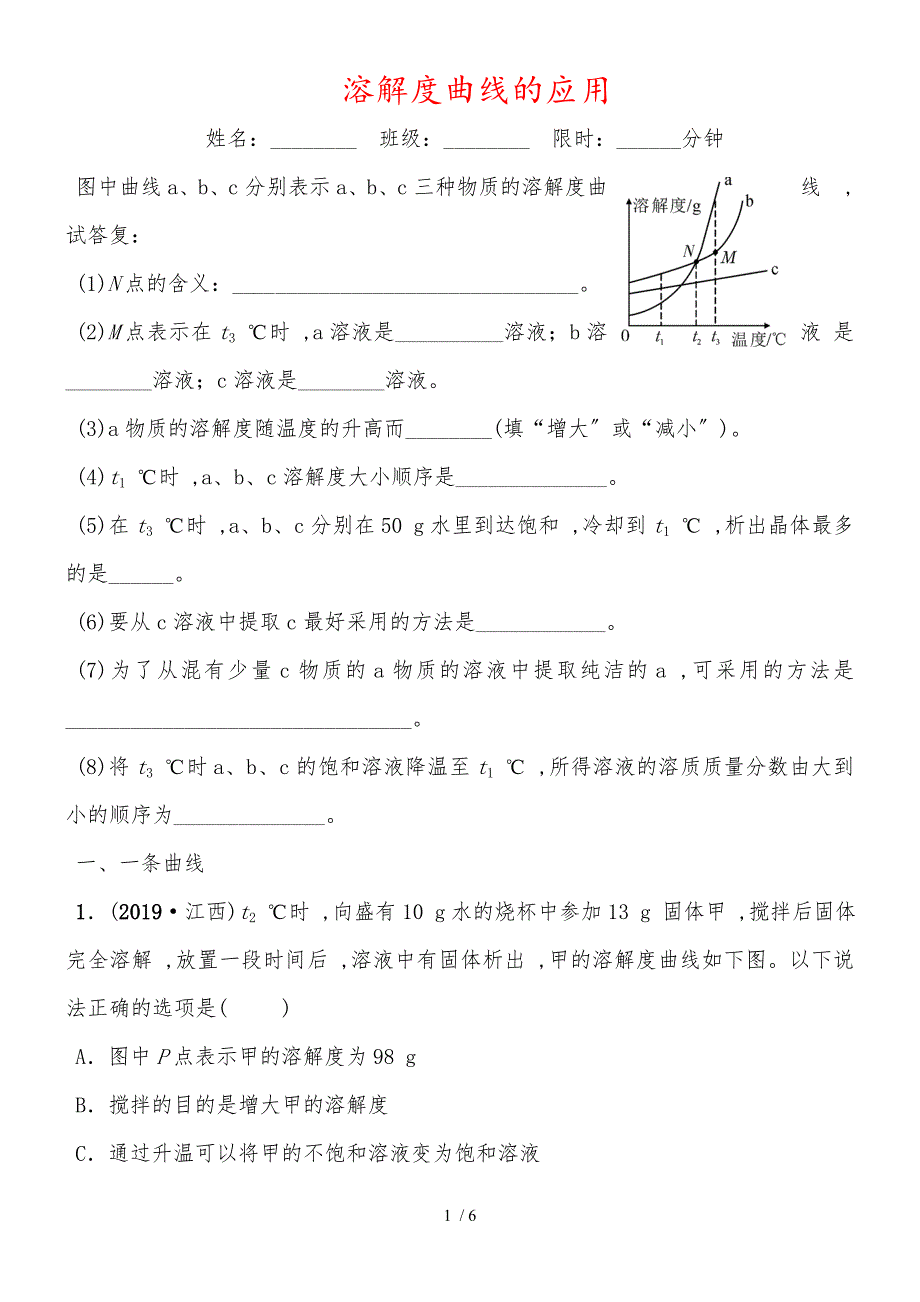 溶解度曲线的应用
姓名：________ 班级：________ 限时：______分钟
图中曲线a、b、c分别表示a、b、c三种物质的溶解度曲线 ,
试答复：
(1)N点的含义：________________________________。
(2)M点表示在 t3 ℃时 ,a溶液是__________溶液；b溶液是
________溶液；c溶液是________溶液。
溶解度/g
a
b
c
N
M
0
t1
t2
t3
温度/℃
(3)a物质的溶解度随温度的升高而________(填“增大〞或“减小〞)。
(4)t1 ℃时 ,a、b、c溶解度大小顺序是______________。
(5)在 t3 ℃时 ,a、b、c分别在50 g水里到达饱和 ,冷却到 t1 ℃ ,析出晶体最多
的是______。
(6)要从c溶液中提取c最好采用的方法是____________。
(7)为了从混有少量c物质的a物质的溶液中提取纯洁的a ,可采用的方法是
________________________________。
(8)将 t3 ℃时a、b、c的饱和溶液降温至 t1 ℃ ,所得溶液的溶质质量分数由大到
小的顺序为______________。
一、一条曲线
1．(2019·江西)t2 ℃时 ,向盛有10 g水的烧杯中参加13 g 固体甲 ,搅拌后固体
完全溶解 ,放置一段时间后 ,溶液中有固体析出 ,甲的溶解度曲线如下图。以下说
法正确的选项是(  )
A．图中P点表示甲的溶解度为98 g
B．搅拌的目的是增大甲的溶解度
C．通过升温可以将甲的不饱和溶液变为饱和溶液
1 / 6